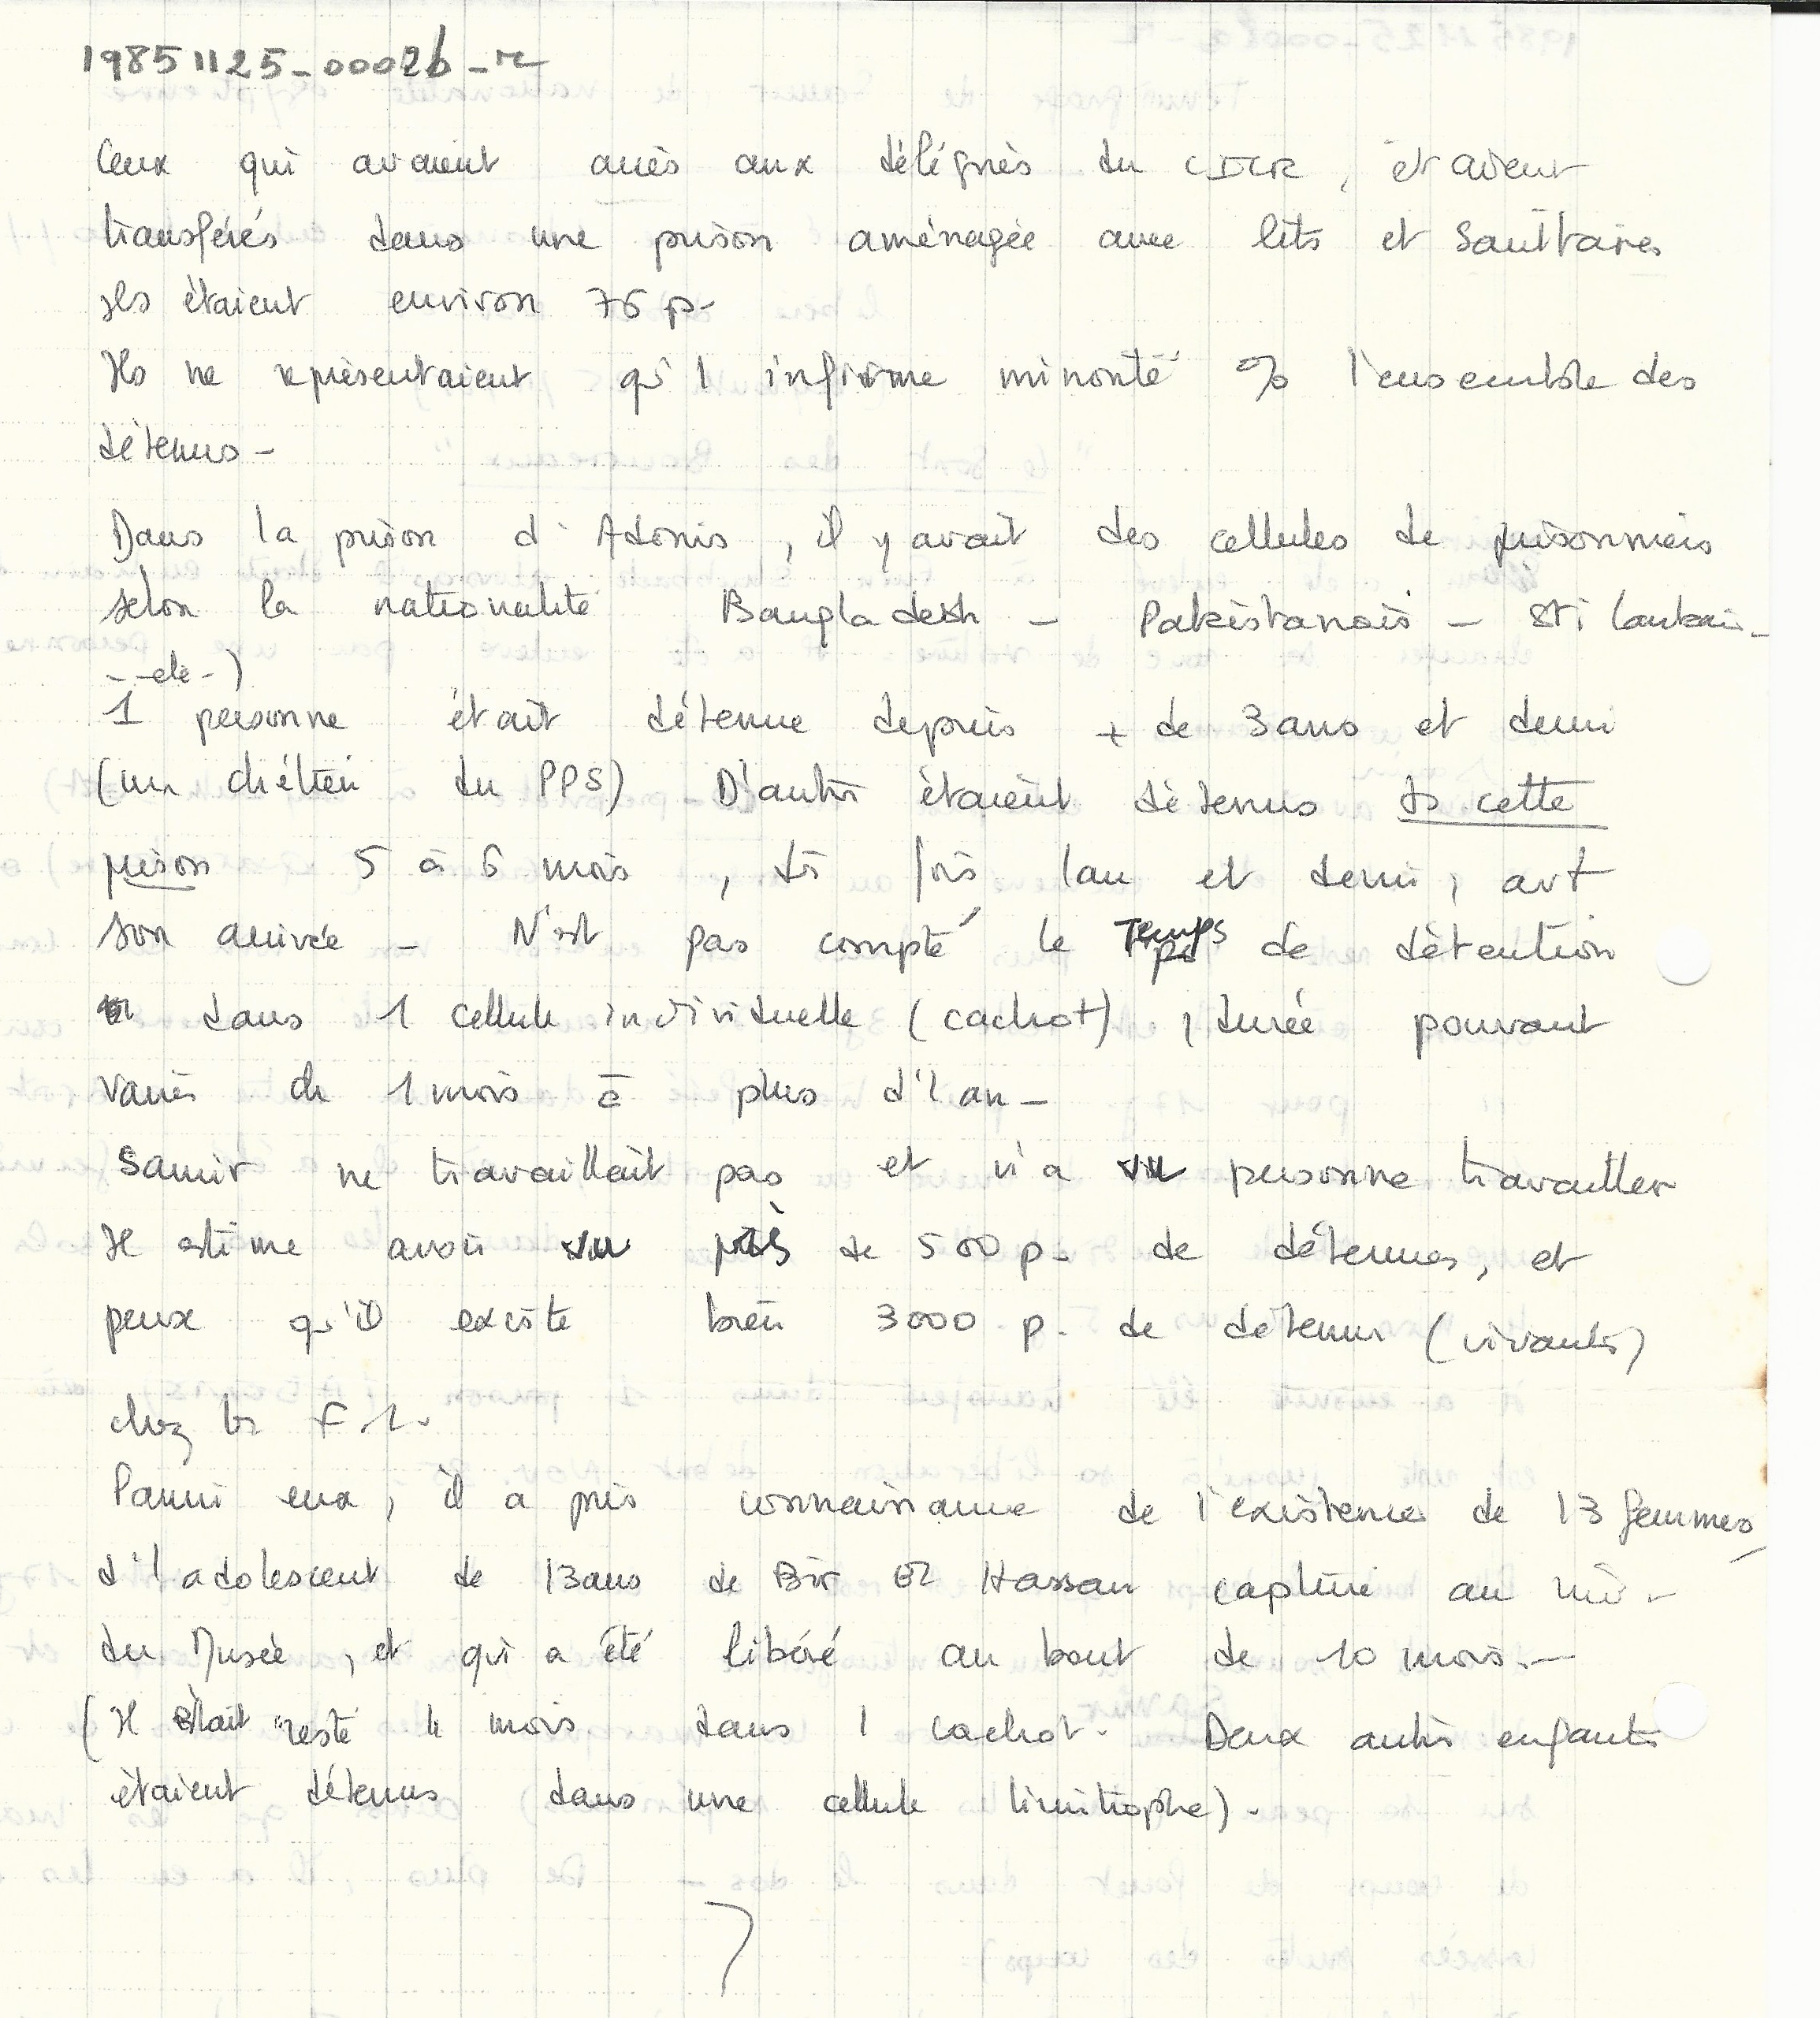 19851125-0002b-r
Ceux qui avaient accès aux délégués du CICR, étaient
transférés dans une prison aménagée avec lits et sanitaires
Ils étaient environ 76 p-
Ils ne représentaient qu'1 infirme minorité % l'ensemble des
détenus -
Dans la prison d'Adonis, il y avait des cellules de prisonniers
selon la nationalité Bangladesh - Pakistanais - Sri lankais -
- - etc -)
1 personne était détenue depuis + de 3 ans et demi
(un chrétien du PPS) D'autres étaient détenus ds cette
prison 5 à 6 mois, ds fois 1 an et demi, avt
son arrivée - N'est pas compté le Temps de détention
dans 1 cellule individuelle (cachot), durée pouvant
varier de 1 mois à plus d'1 an -
Samir ne travaillait pas et n'a vu personne travailler
Il estime avoir vu près de 500 p. de détenus, et
peux qu'il existe bien 3000 p. de détenus (vivants)
chez les F.L.
Parmi eux, il a pris connaissance de l'existence de 13 femmes,
d'1 adolescent de 13 ans de Bir El Hassan capturé au
du Musée, et qui a été libéré au bout de 10 mois. -
(Il était resté 4 mois dans 1 cachot. Deux autres enfants
étaient détenus dans une cellule limitrophe).